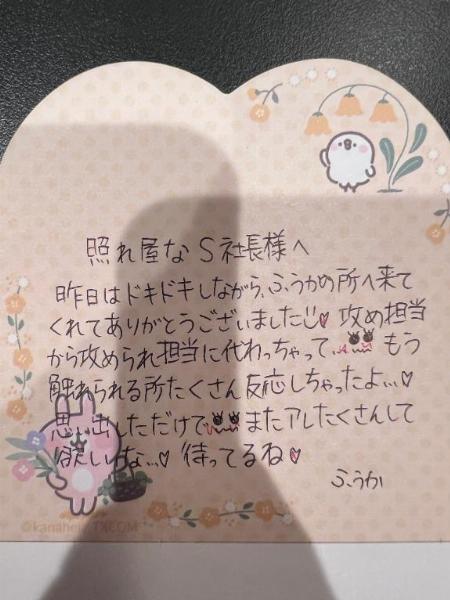 照れ屋なS社長様へ
昨日はドキドキしながら、ふうかの所へ来て
くれてありがとうございました♡ 攻め担当
から攻められ担当に代わっちゃって、 もう
触れられる所たくさん反応しちゃったよ…♡
思い出しただけで またアレたくさんして
欲しいな…♡ 待ってるね♡
ふうか
©kanahei/TXCOM